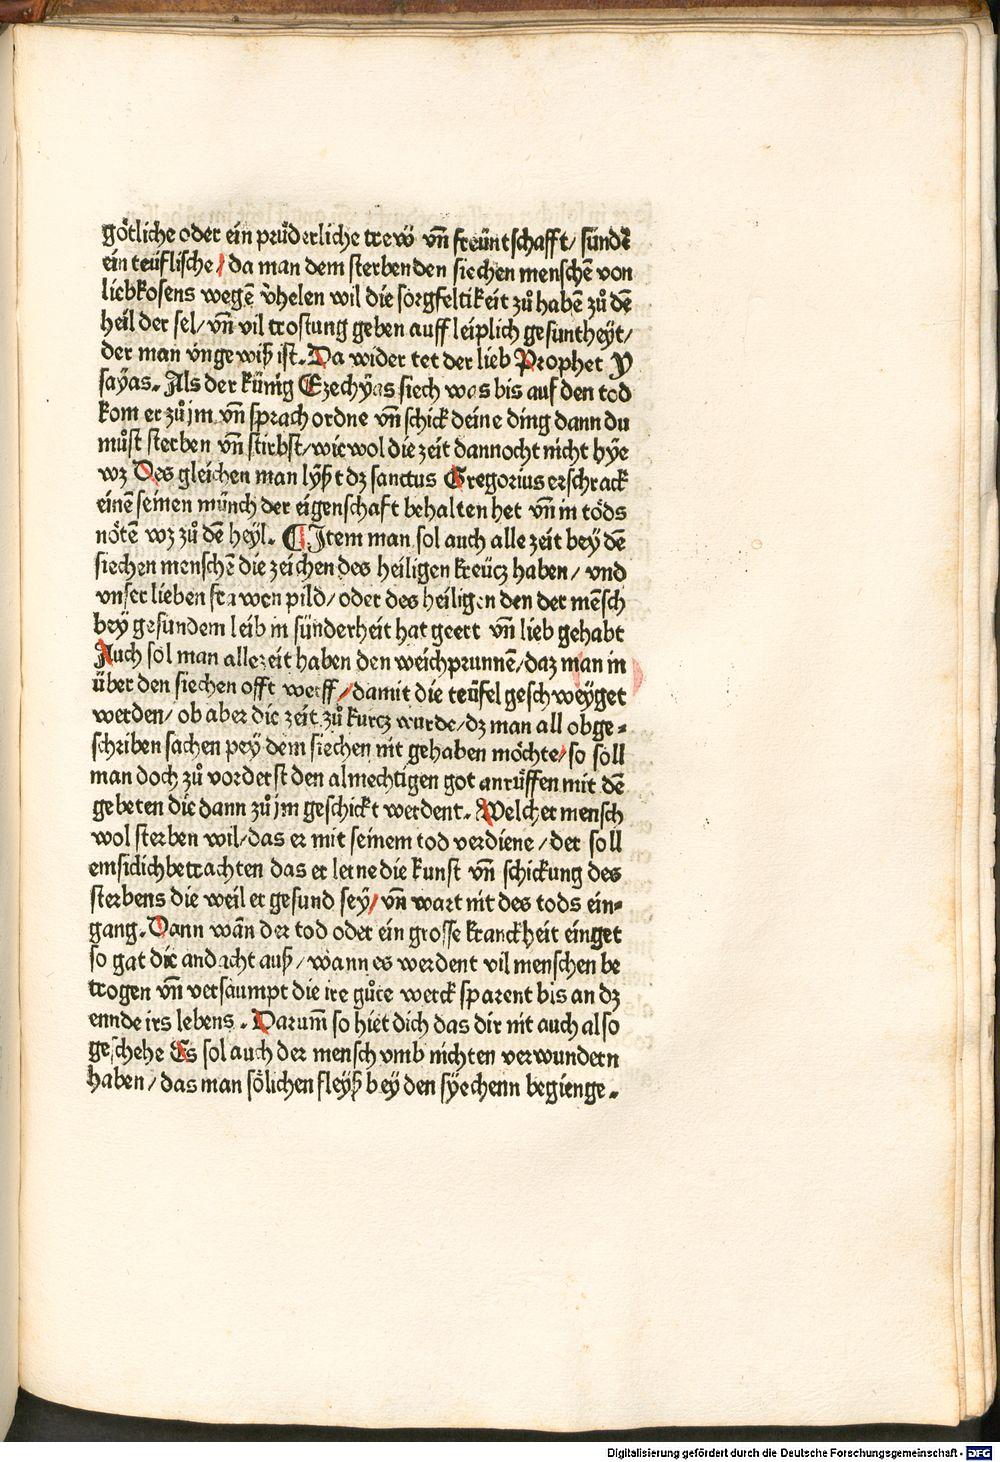 götliche oder ein prüderliche trew vn̄ freüntschafft/ sündͤr
ein teüflische / da man dem sterbenden siechen menschē von
liebkosens wegē v̾helen wil die sorgfeltikeit zů habē zů dē
heil der sel/ vn̄ vil trostung geben auff leiplich gesuntheÿt/
der man vngewiß ist. Da wider tet der lieb Prophet Y
saÿas. Als der künig Ezechÿas siech was bis auf den tod
kom er zů jm vn̄ sprach ordne vn̄ schick deine ding dann du
můst sterben vn̄ stirbst/ wie wol die zeit dannocht nicht hÿe
wz Des gleichen man lÿßt dz sanctus Gregorius erschrack
einē seinen münch der eigenschaft behalten het vn̄ in töds
nötē wz zů dē heÿl. ¶ Item man sol auch alle zeit beÿ dē
siechen menschē die zeichen des heiligen kreücz haben / vnd
vnser lieben frawen pild/ oder des heiligen den der mēsch
beÿ gesundem leib in sünderheit hat geert vn̄ lieb gehabt
Auch sol man allezeit haben den weichprunnē/ daz man in
über den siechen offt werff / damit die teüfel geschweÿget
werden/ ob aber die zeit zů kurcz wurde/ dz man all obge-
schriben sachen peÿ dem siechen nit gehaben möchte/ so soll
man doch zů vorderst den almechtigen got anrůffen mit dē
gebeten die dann zů jm geschickt werdent. Welcher mensch
wol sterben wil/ das er mit seinem tod verdiene / der soll
emsiclich betrachten das er lerne die kunst vn̄ schickung des
sterbens die weil er gesund seÿ/ vn̄ wart nit des tods ein-
gang. Dann wān der tod oder ein grosse kranckheit einget
so gat die andacht auß / wann es werdent vil menschen be
trogen vn̄ versaumpt die ire gůte werck sparent bis an dz
ennde irs lebens. Darum̄ so hiet dich das dir nit auch also
geschehe Es sol auch der mensch vmb nichten verwundern
haben / das man sölichen fleÿß beÿ den sÿechenn begienge.
Digitalisierung gefördert durch die Deutsche Forschungsgemeinschaft - DFG